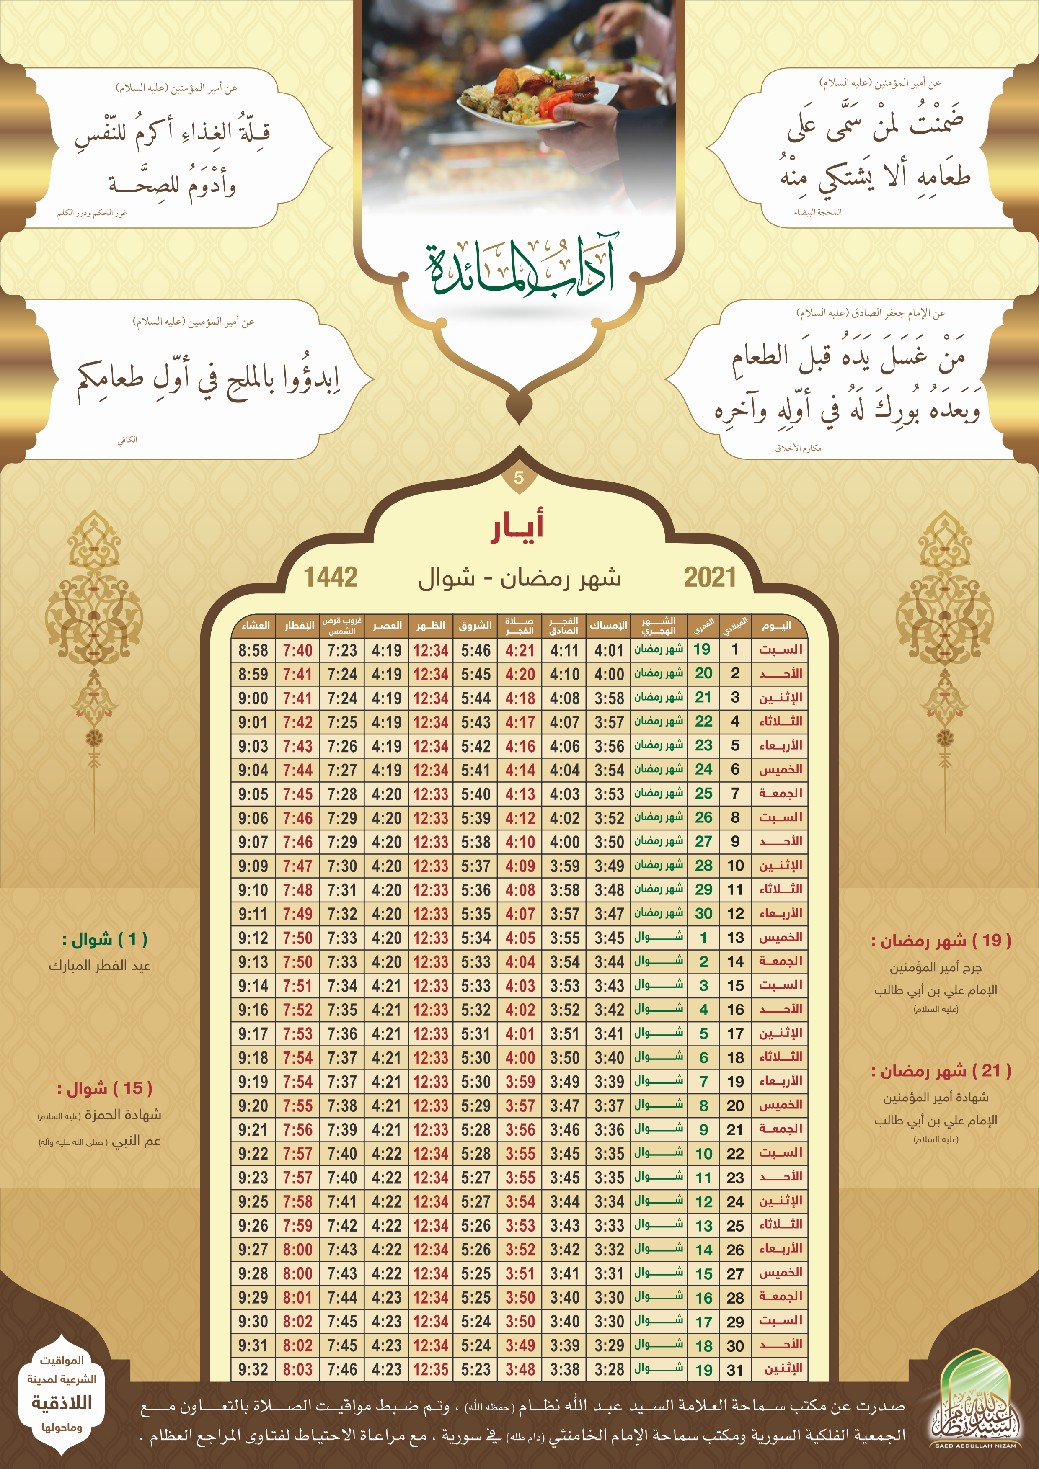 عن أمير المؤمنين (عليه السلام)
ضَمنْتُ لمنْ سَمَّى عَلَى
طعَامِهِ ألا يَشتكي مِنْهُ
المحجة البيضاء
عن أمير المؤمنين (عليه السلام)
قِلّةُ الغِذاءِ أكرمُ للنّفْسِ
وأدْوَمُ للصِحَّة
غرر الحكم ودرر الكلم
آداب المائدة
عن الإمام جعفر الصادق (عليه السلام)
مَنْ غَسَلَ يَدَهُ قبلَ الطعامِ
وَبَعدَهُ بُورِكَ لَهُ في أوّلِهِ وآخرِه
مكارم الأخلاق
عن أمير المؤمنين (عليه السلام)
اِبدؤُوا بالملحِ في أوّلِ طعامِكم
الكافي
5
أيار
2021 شهر رمضان - شوال 1442
اليوم الميلادي القمري الشهر الهجري الإمساك الفجر الصادق صلاة الفجر الشروق الظهر العصر غروب قرص الشمس الإفطار العشاء
السبت 1 19 شهر رمضان 4:01 4:11 4:21 5:46 12:34 4:19 7:23 7:40 8:58
الأحد 2 20 شهر رمضان 4:00 4:10 4:20 5:45 12:34 4:19 7:24 7:41 8:59
الإثنين 3 21 شهر رمضان 3:58 4:08 4:18 5:44 12:34 4:19 7:24 7:41 9:00
الثلاثاء 4 22 شهر رمضان 3:57 4:07 4:17 5:43 12:34 4:19 7:25 7:42 9:01
الأربعاء 5 23 شهر رمضان 3:56 4:06 4:16 5:42 12:34 4:19 7:26 7:43 9:03
الخميس 6 24 شهر رمضان 3:54 4:04 4:14 5:41 12:34 4:19 7:27 7:44 9:04
الجمعة 7 25 شهر رمضان 3:53 4:03 4:13 5:40 12:33 4:20 7:28 7:45 9:05
السبت 8 26 شهر رمضان 3:52 4:02 4:12 5:39 12:33 4:20 7:29 7:46 9:06
الأحد 9 27 شهر رمضان 3:50 4:00 4:10 5:38 12:33 4:20 7:29 7:46 9:07
الإثنين 10 28 شهر رمضان 3:49 3:59 4:09 5:37 12:33 4:20 7:30 7:47 9:09
الثلاثاء 11 29 شهر رمضان 3:48 3:58 4:08 5:36 12:33 4:20 7:31 7:48 9:10
الأربعاء 12 30 شهر رمضان 3:47 3:57 4:07 5:35 12:33 4:20 7:32 7:49 9:11
الخميس 13 1 شوال 3:45 3:55 4:05 5:34 12:33 4:20 7:33 7:50 9:12
الجمعة 14 2 شوال 3:44 3:54 4:04 5:33 12:33 4:20 7:33 7:50 9:13
السبت 15 3 شوال 3:43 3:53 4:03 5:33 12:33 4:21 7:34 7:51 9:14
الأحد 16 4 شوال 3:42 3:52 4:02 5:32 12:33 4:21 7:35 7:52 9:16
الإثنين 17 5 شوال 3:41 3:51 4:01 5:31 12:33 4:21 7:36 7:53 9:17
الثلاثاء 18 6 شوال 3:40 3:50 4:00 5:30 12:33 4:21 7:37 7:54 9:18
الأربعاء 19 7 شوال 3:39 3:49 3:59 5:30 12:33 4:21 7:37 7:54 9:19
الخميس 20 8 شوال 3:37 3:47 3:57 5:29 12:33 4:21 7:38 7:55 9:20
الجمعة 21 9 شوال 3:36 3:46 3:56 5:28 12:33 4:21 7:39 7:56 9:21
السبت 22 10 شوال 3:35 3:45 3:55 5:28 12:34 4:22 7:40 7:57 9:22
الأحد 23 11 شوال 3:35 3:45 3:55 5:27 12:34 4:22 7:40 7:57 9:23
الإثنين 24 12 شوال 3:34 3:44 3:54 5:27 12:34 4:22 7:41 7:58 9:25
الثلاثاء 25 13 شوال 3:33 3:43 3:53 5:26 12:34 4:22 7:42 7:59 9:26
الأربعاء 26 14 شوال 3:32 3:42 3:52 5:26 12:34 4:22 7:43 8:00 9:27
الخميس 27 15 شوال 3:31 3:41 3:51 5:25 12:34 4:22 7:43 8:00 9:28
الجمعة 28 16 شوال 3:30 3:40 3:50 5:25 12:34 4:23 7:44 8:01 9:29
السبت 29 17 شوال 3:30 3:40 3:50 5:24 12:34 4:23 7:45 8:02 9:30
الأحد 30 18 شوال 3:29 3:39 3:49 5:24 12:34 4:23 7:45 8:02 9:31
الإثنين 31 19 شوال 3:28 3:38 3:48 5:23 12:35 4:23 7:46 8:03 9:32
( 19 ) شهر رمضان :
جرح أمير المؤمنين
الإمام علي بن أبي طالب
(عليه السلام)
( 21 ) شهر رمضان :
شهادة أمير المؤمنين
الإمام علي بن أبي طالب
(عليه السلام)
( 1 ) شوال :
عيد الفطر المبارك
( 15 ) شوال :
شهادة الحمزة (عليه السلام)
عم النبي (صلى الله عليه وآله)
المواقيت
الشرعية لمدينة
اللاذقية
وماحولها
صدرت عن مكتب سماحة العلامة السيد عبد الله نظام (حفظه الله) ، وتم ضبط مواقيت الصلاة بالتعاون مع
الجمعية الفلكية السورية ومكتب سماحة الإمام الخامنئي (دام ظله) في سورية ، مع مراعاة الاحتياط لفتاوى المراجع العظام .
السيد عبد الله نظام
SAED ABDULLAH NIZAM